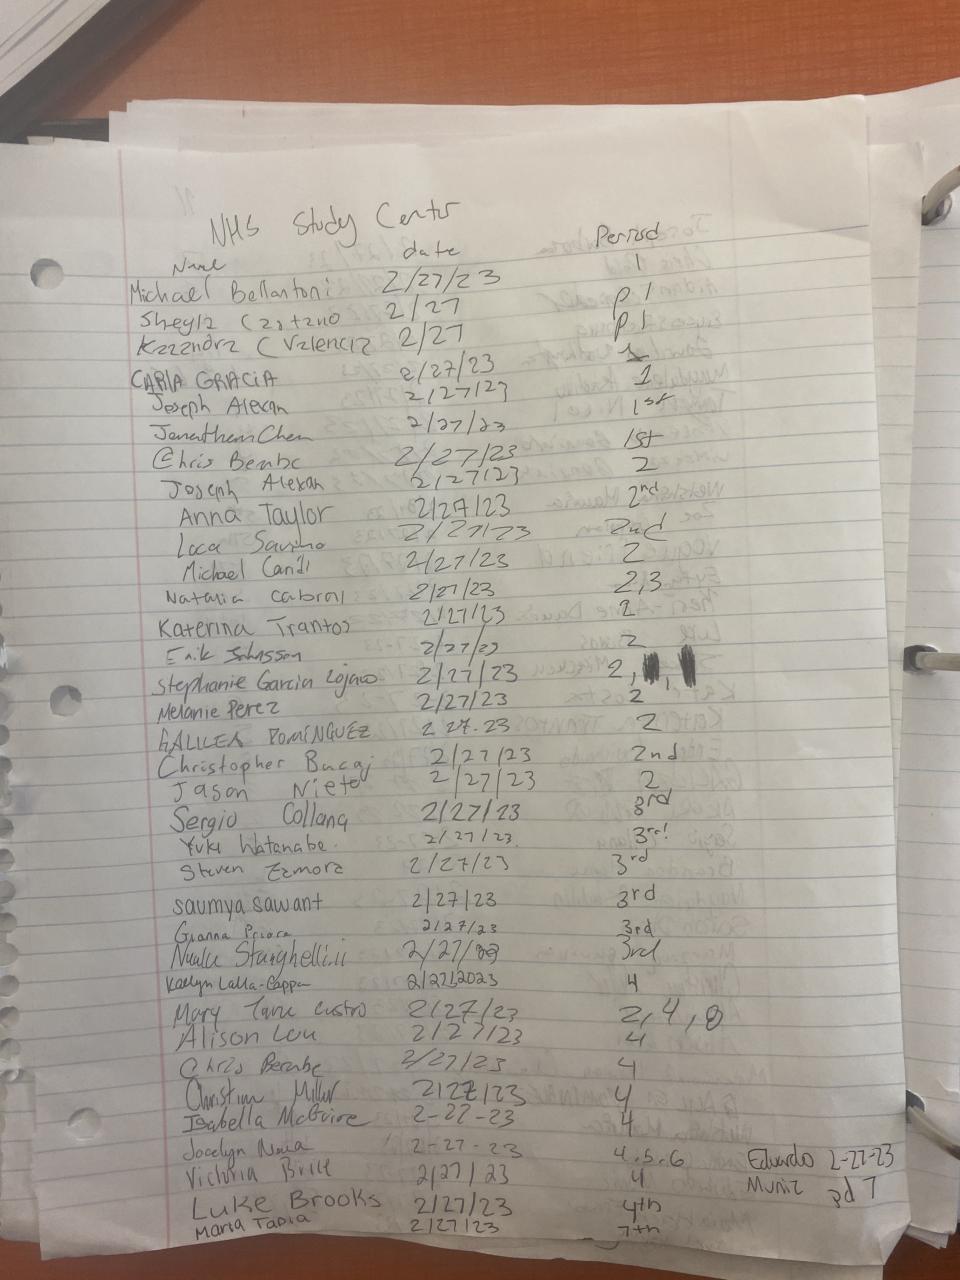 NHS Study Center
Name date Period
Michael Bellantoni 2/27/23 1
Sheyla 2/27 P 1
Kazandra C Valencia 2/27 P 1
CARLA GRACIA 2/27/23 1
Joseph Alexan 2/27/23 1
Jonathan Chen 2/27/23 1st
Chris Bembe 2/27/23 1st
Joseph Alexan 2/27/23 2
Anna Taylor 2/27/23 2nd
Luca Savino 2/27/23 2nd
Michael 2/27/23 2
Natalia Cabral 2/27/23 2,3
Katerina Trantos 2/27/23 2
Erik Johnsson 2/27/23 2
Stephanie Garcia Lojano 2/27/23 2,
Melanie Perez 2/27/23 2
GALILEA DOMINGUEZ 2.27.23 2
Christopher Bucaj 2/27/23 2nd
Jason Nieto 2/27/23 2
Sergio Collana 2/27/23 3rd
Yuki Watanabe. 2/27/23. 3rd
Steven 2/27/23 3rd
saumya sawant 2/27/23 3rd
Gianna 2/27/23 3rd
2/27/ 3rd
Kaelyn Lalla-Cappa 2/27/2023 4
Mary Jane Castro 2/27/23 2,4,8
Alison Lou 2/27/23 4
Chris Bembe 2/27/23 4
Christian Miller 2/27/23 4
Isabella McGuire 2-27-23 4
Jocelyn Naula 2-27-23 4,5,6
Victoria 2/27/23 4
Luke Brooks 2/27/23 4th
Maria Tapia 2/27/23 7th
Eduardo 2-27-23
Muniz pd 7